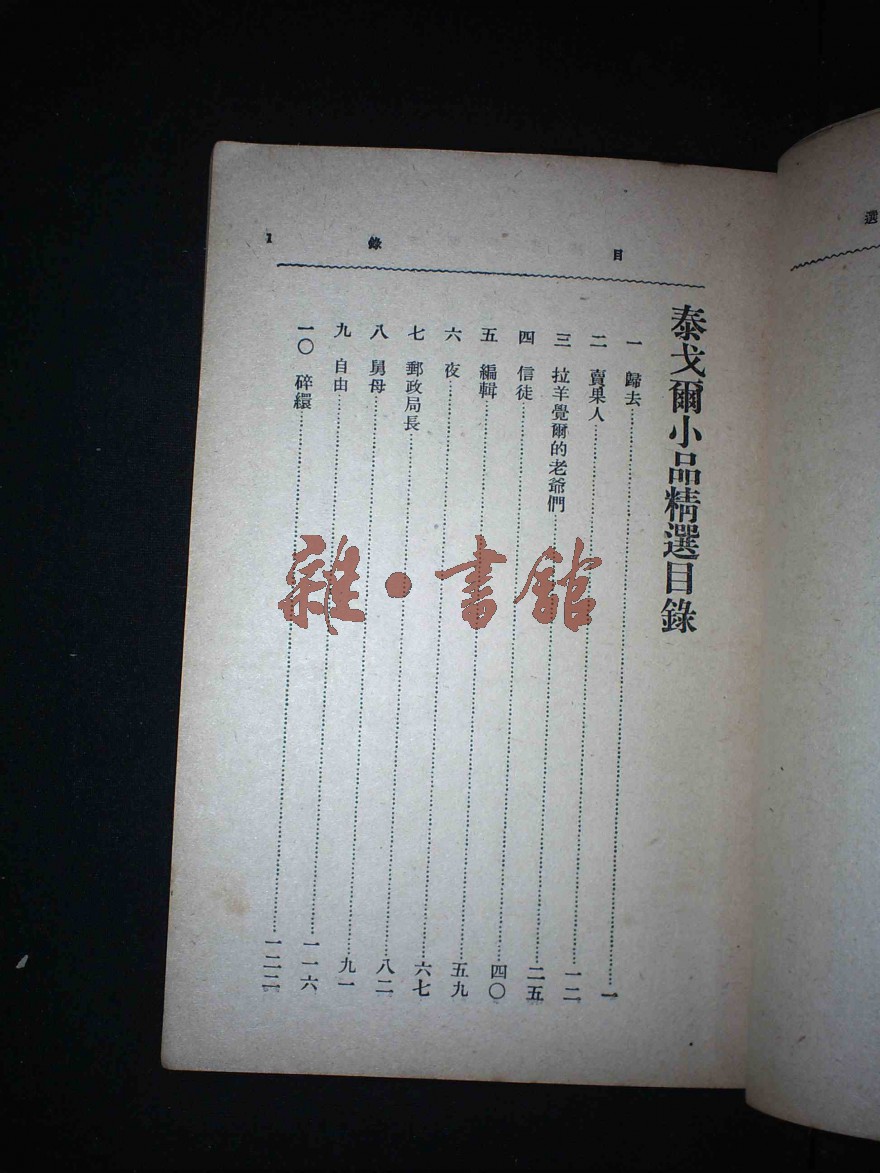 選
目錄 1
泰戈爾小品精選目錄
一 歸去……一
二 賣果人……一二
三 拉羊覺爾的老爺們……二五
四 信徒……四〇
五 編輯……五九
六 夜……六七
七 郵政局長……八二
八 舅母……九一
九 自由……一一六
一〇 碎繯……一二二
雜·書館